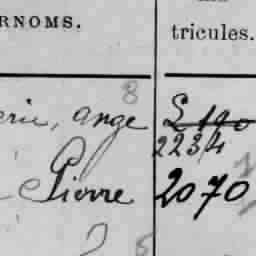 RNOMS. tricules.
8
erie, ange 2190
2234
Pierre 2070